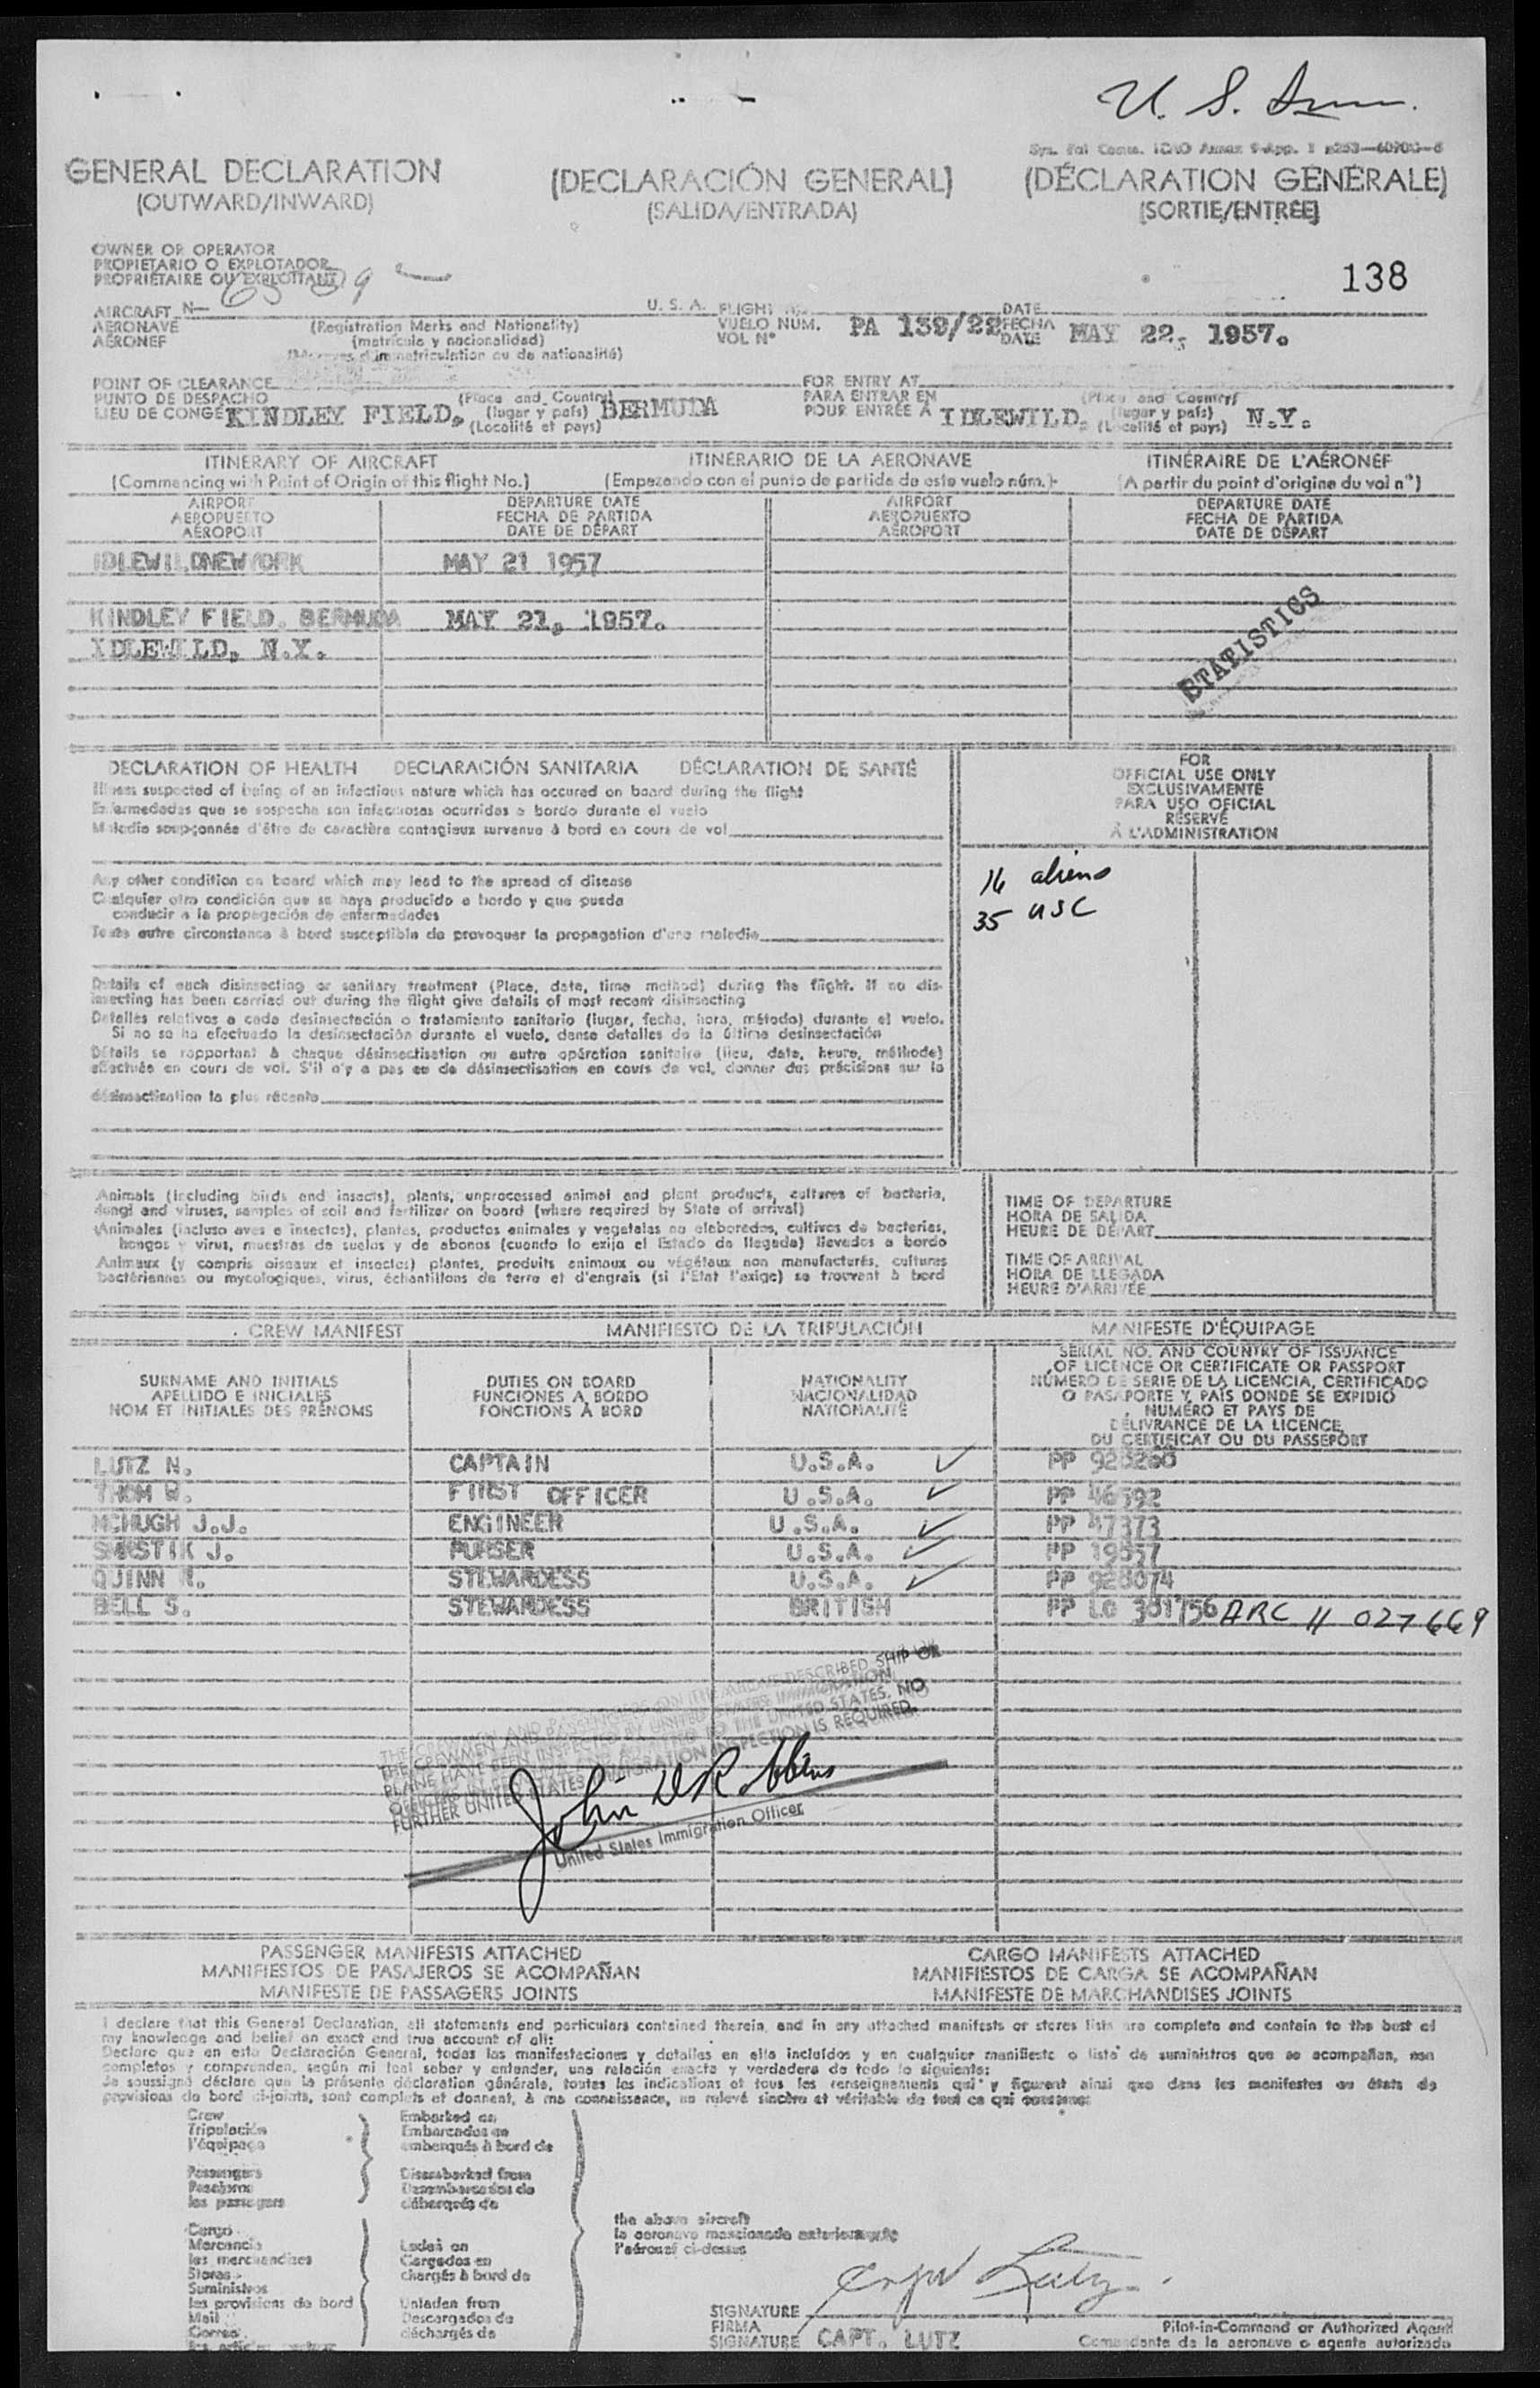 U. S. Imm.
GENERAL DECLARATION
(OUTWARD/INWARD)
(DECLARACIÓN GENERAL)
(SALIDA/ENTRADA)
(DÉCLARATION GÉNÉRALE)
(SORTIE/ENTRÉE)
OWNER OR OPERATOR
PROPIETARIO O EXPLOTADOR
PROPRIÉTAIRE OU EXPLOITANT
138
AIRCRAFT N—
AERONAVE
AÉRONEF
(Registration Marks and Nationality)
(matrícula y nacionalidad)
(Marques d'immatriculation ou de nationalité)
U. S. A.
FLIGHT NO.
VUELO NUM.
VOL N°
PA 139/22
DATE
FECHA
DATE
MAY 22, 1957.
POINT OF CLEARANCE
PUNTO DE DESPACHO
LIEU DE CONGÉ
KINDLEY FIELD,
(Place and Country)
(lugar y país)
(Localité et pays)
BERMUDA
FOR ENTRY AT
PARA ENTRAR EN
POUR ENTRÉE À
IDLEWILD,
(Place and Country)
(lugar y país)
(Localité et pays)
N.Y.
ITINERARY OF AIRCRAFT
(Commencing with Point of Origin of this flight No.)
ITINERARIO DE LA AERONAVE
(Empezando con el punto de partida de este vuelo núm.)
ITINÉRAIRE DE L'AÉRONEF
(A partir du point d'origine du vol n°)
AIRPORT
AEROPUERTO
AÉROPORT
DEPARTURE DATE
FECHA DE PARTIDA
DATE DE DÉPART
AIRPORT
AEROPUERTO
AÉROPORT
DEPARTURE DATE
FECHA DE PARTIDA
DATE DE DÉPART
IDLEWILDNEWYORK MAY 21 1957
KINDLEY FIELD, BERMUDA MAY 21, 1957.
IDLEWILD, N.Y.
STATISTICS
DECLARATION OF HEALTH DECLARACIÓN SANITARIA DÉCLARATION DE SANTÉ
Illness suspected of being of an infectious nature which has occured on board during the flight
Enfermedades que se sospeche son infecciosas ocurridas a bordo durante el vuelo
Maladie soupçonnée d'être de caractère contagieux survenue à bord en cours de vol
Any other condition on board which may lead to the spread of disease
Cualquier otra condición que se haya producido a bordo y que pueda
conducir a la propagación de enfermedades
Toute autre circonstance à bord susceptible de provoquer la propagation d'une maladie
Details of each disinsecting or sanitary treatment (Place, date, time method) during the flight. If no dis-
insecting has been carried out during the flight give details of most recent disinsecting
Detalles relativos a cada desinsectación o tratamiento sanitario (lugar, fecha, hora, método) durante el vuelo.
Si no se ha efectuado la desinsectación durante el vuelo, dense detalles de la última desinsectación
Détails se rapportant à chaque désinsectisation ou autre opération sanitaire (lieu, date, heure, méthode)
effectuée en cours de vol. S'il n'y a pas eu de désinsectisation en cours de vol, donner des précisions sur la
désinsectisation la plus récente
FOR
OFFICIAL USE ONLY
EXCLUSIVAMENTE
PARA USO OFICIAL
RÉSERVÉ
À L'ADMINISTRATION
16 aliens
35 USC
Animals (including birds and insects), plants, unprocessed animal and plant products, cultures of bacteria,
fungi and viruses, samples of soil and fertilizer on board (where required by State of arrival)
Animales (incluso aves e insectos), plantas, productos animales y vegetales no elaborados, cultivos de bacterias,
hongos y virus, muestras de suelos y de abonos (cuando lo exija el Estado de llegada) llevados a bordo
Animaux (y compris oiseaux et insectes) plantes, produits animaux ou végétaux non manufacturés, cultures
bactériennes ou mycologiques, virus, échantillons de terre et d'engrais (si l'Etat l'exige) se trouvant à bord
TIME OF DEPARTURE
HORA DE SALIDA
HEURE DE DÉPART
TIME OF ARRIVAL
HORA DE LLEGADA
HEURE D'ARRIVÉE
CREW MANIFEST MANIFIESTO DE LA TRIPULACIÓN MANIFESTE D'ÉQUIPAGE
SURNAME AND INITIALS
APELLIDO E INICIALES
NOM ET INITIALES DES PRÉNOMS
DUTIES ON BOARD
FUNCIONES A BORDO
FONCTIONS À BORD
NATIONALITY
NACIONALIDAD
NATIONALITÉ
SERIAL NO. AND COUNTRY OF ISSUANCE
OF LICENCE OR CERTIFICATE OR PASSPORT
NÚMERO DE SERIE DE LA LICENCIA, CERTIFICADO
O PASAPORTE Y PAÍS DONDE SE EXPIDIÓ
NUMÉRO ET PAYS DE
DÉLIVRANCE DE LA LICENCE,
DU CERTIFICAT OU DU PASSEPORT
LUTZ N. CAPTAIN U.S.A. PP
THOM FIRST OFFICER U.S.A. PP 46592
MCHUGH J.J. ENGINEER U.S.A. PP 47373
J. PURSER U.S.A. PP 19557
QUINN STEWARDESS U.S.A. PP 928074
BELL S. STEWARDESS BRITISH PP LO 301756 ARC 11 027669
THE CREWMEN AND PASSENGERS ON THE ABOVE DESCRIBED SHIP OR
PLANE HAVE BEEN INSPECTED BY UNITED STATES IMMIGRATION
TO THE UNITED STATES. NO
FURTHER UNITED STATES IMMIGRATION INSPECTION IS REQUIRED.
John Robbins
United States Immigration Officer
PASSENGER MANIFESTS ATTACHED
MANIFIESTOS DE PASAJEROS SE ACOMPAÑAN
MANIFESTE DE PASSAGERS JOINTS
CARGO MANIFESTS ATTACHED
MANIFIESTOS DE CARGA SE ACOMPAÑAN
MANIFESTE DE MARCHANDISES JOINTS
I declare that this General Declaration, all statements and particulars contained therein, and in any attached manifests or stores lists are complete and contain to the best of
my knowledge and belief an exact and true account of all:
Declaro que en esta Declaración General, todas las manifestaciones y detalles en ella incluídos y en cualquier manifiesto o lista de suministros que se acompañan, son
completos y comprenden, según mi leal saber y entender, una relación exacta y verdadera de todo lo siguiente:
Je soussigné déclare que la présente déclaration générale, toutes les indications et tous les renseignements qui y figurent ainsi que dans les manifestes ou états de
provisions de bord ci-joints, sont complets et donnent, à ma connaissance, un relevé sincère et véritable de tout ce qui concerne:
Crew
Tripulación
l'équipage
Passengers
Pasajeros
les passagers
Cargo
Mercancía
les merchandises
Stores
Suministros
les provisions de bord
Mail
Correo
Embarked on
Embarcados en
embarqués à bord de
Disembarked from
Desembarcados de
débarqués de
Laden on
Cargados en
chargés à bord de
Unladen from
Descargados de
déchargés de
the above aircraft
la aeronave mencionada anteriormente
l'aéronef ci-dessus
SIGNATURE
FIRMA
SIGNATURE
Lutz
CAPT. LUTZ
Pilot-in-Command or Authorized Agent
Comandante de la aeronave o agente autorizado